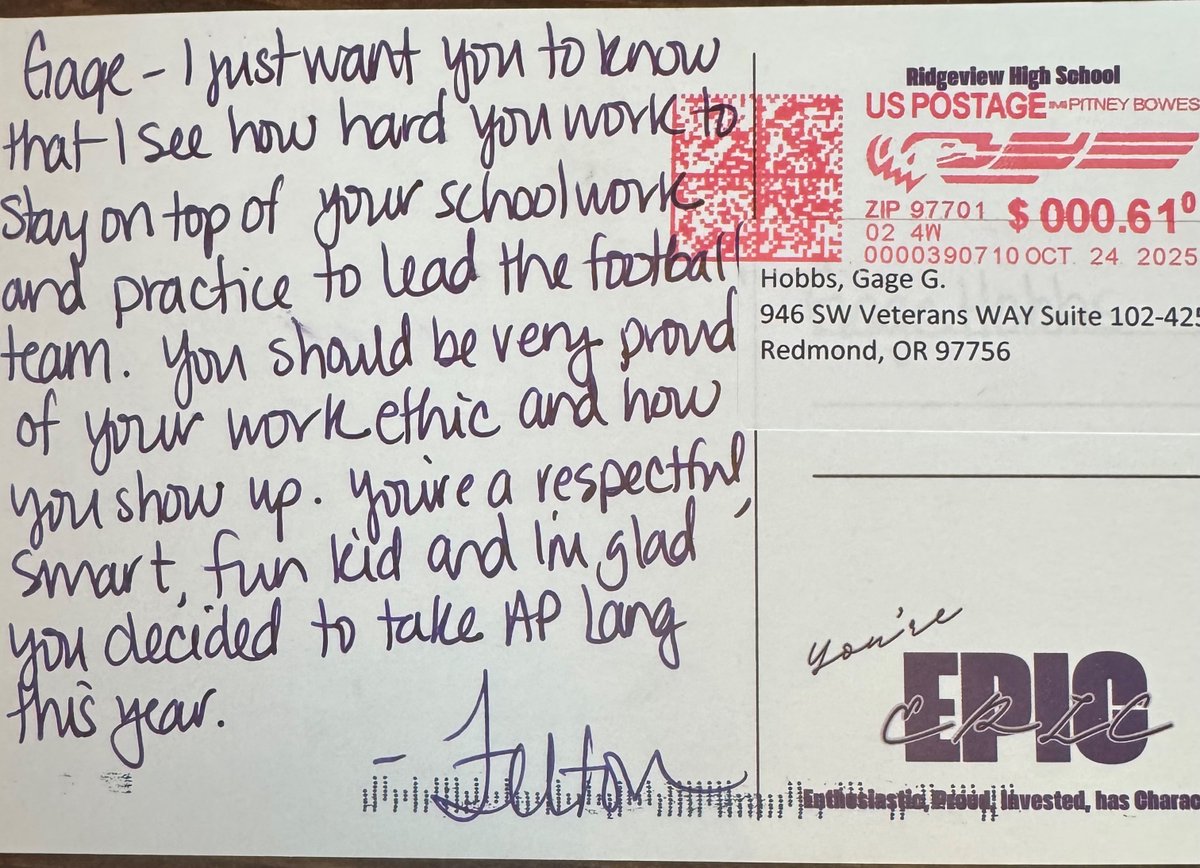 Gage - I just want you to know
that I see how hard you work to
stay on top of your schoolwork
and practice to lead the football
team. You should be very proud
of your work ethic and how
you show up. You're a respectful,
smart, fun kid and I'm glad
you decided to take AP Lang
this year.
- Felton
Ridgeview High School
US POSTAGE IMI PITNEY BOWES
ZIP 97701 $ 000.61⁰
02 4W
0000390710 OCT. 24 2025
Hobbs, Gage G.
946 SW Veterans WAY Suite 102-425
Redmond, OR 97756
you're
EPIC
Enthusiastic, Proud, Invested, has Charac